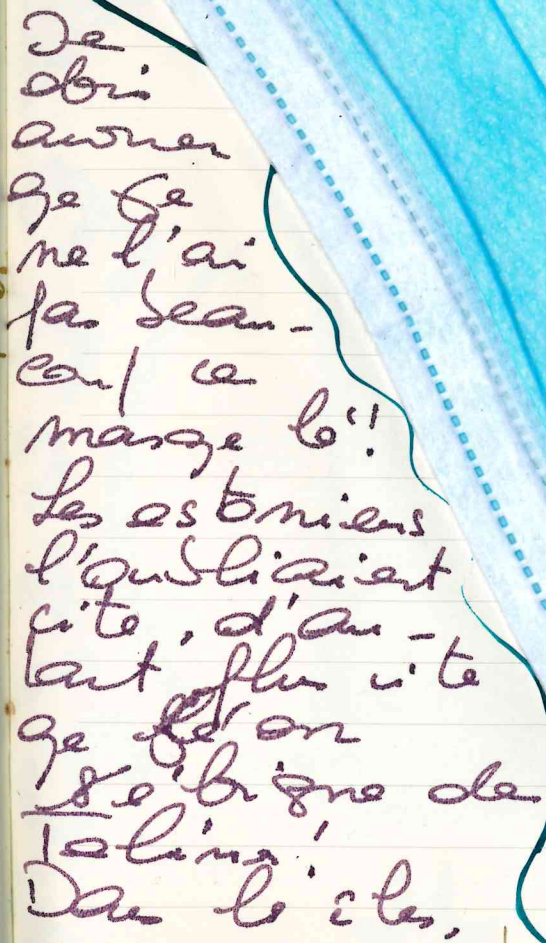 Je
dois
avouer
qe je
ne l'ai
pas beau-
coup ce
masqe là!
Les estoniens
l'oubliaient
vite, d'au-
tant plus vite
qe l'on
s'éloigne de
Talinn!
Dans les îles,